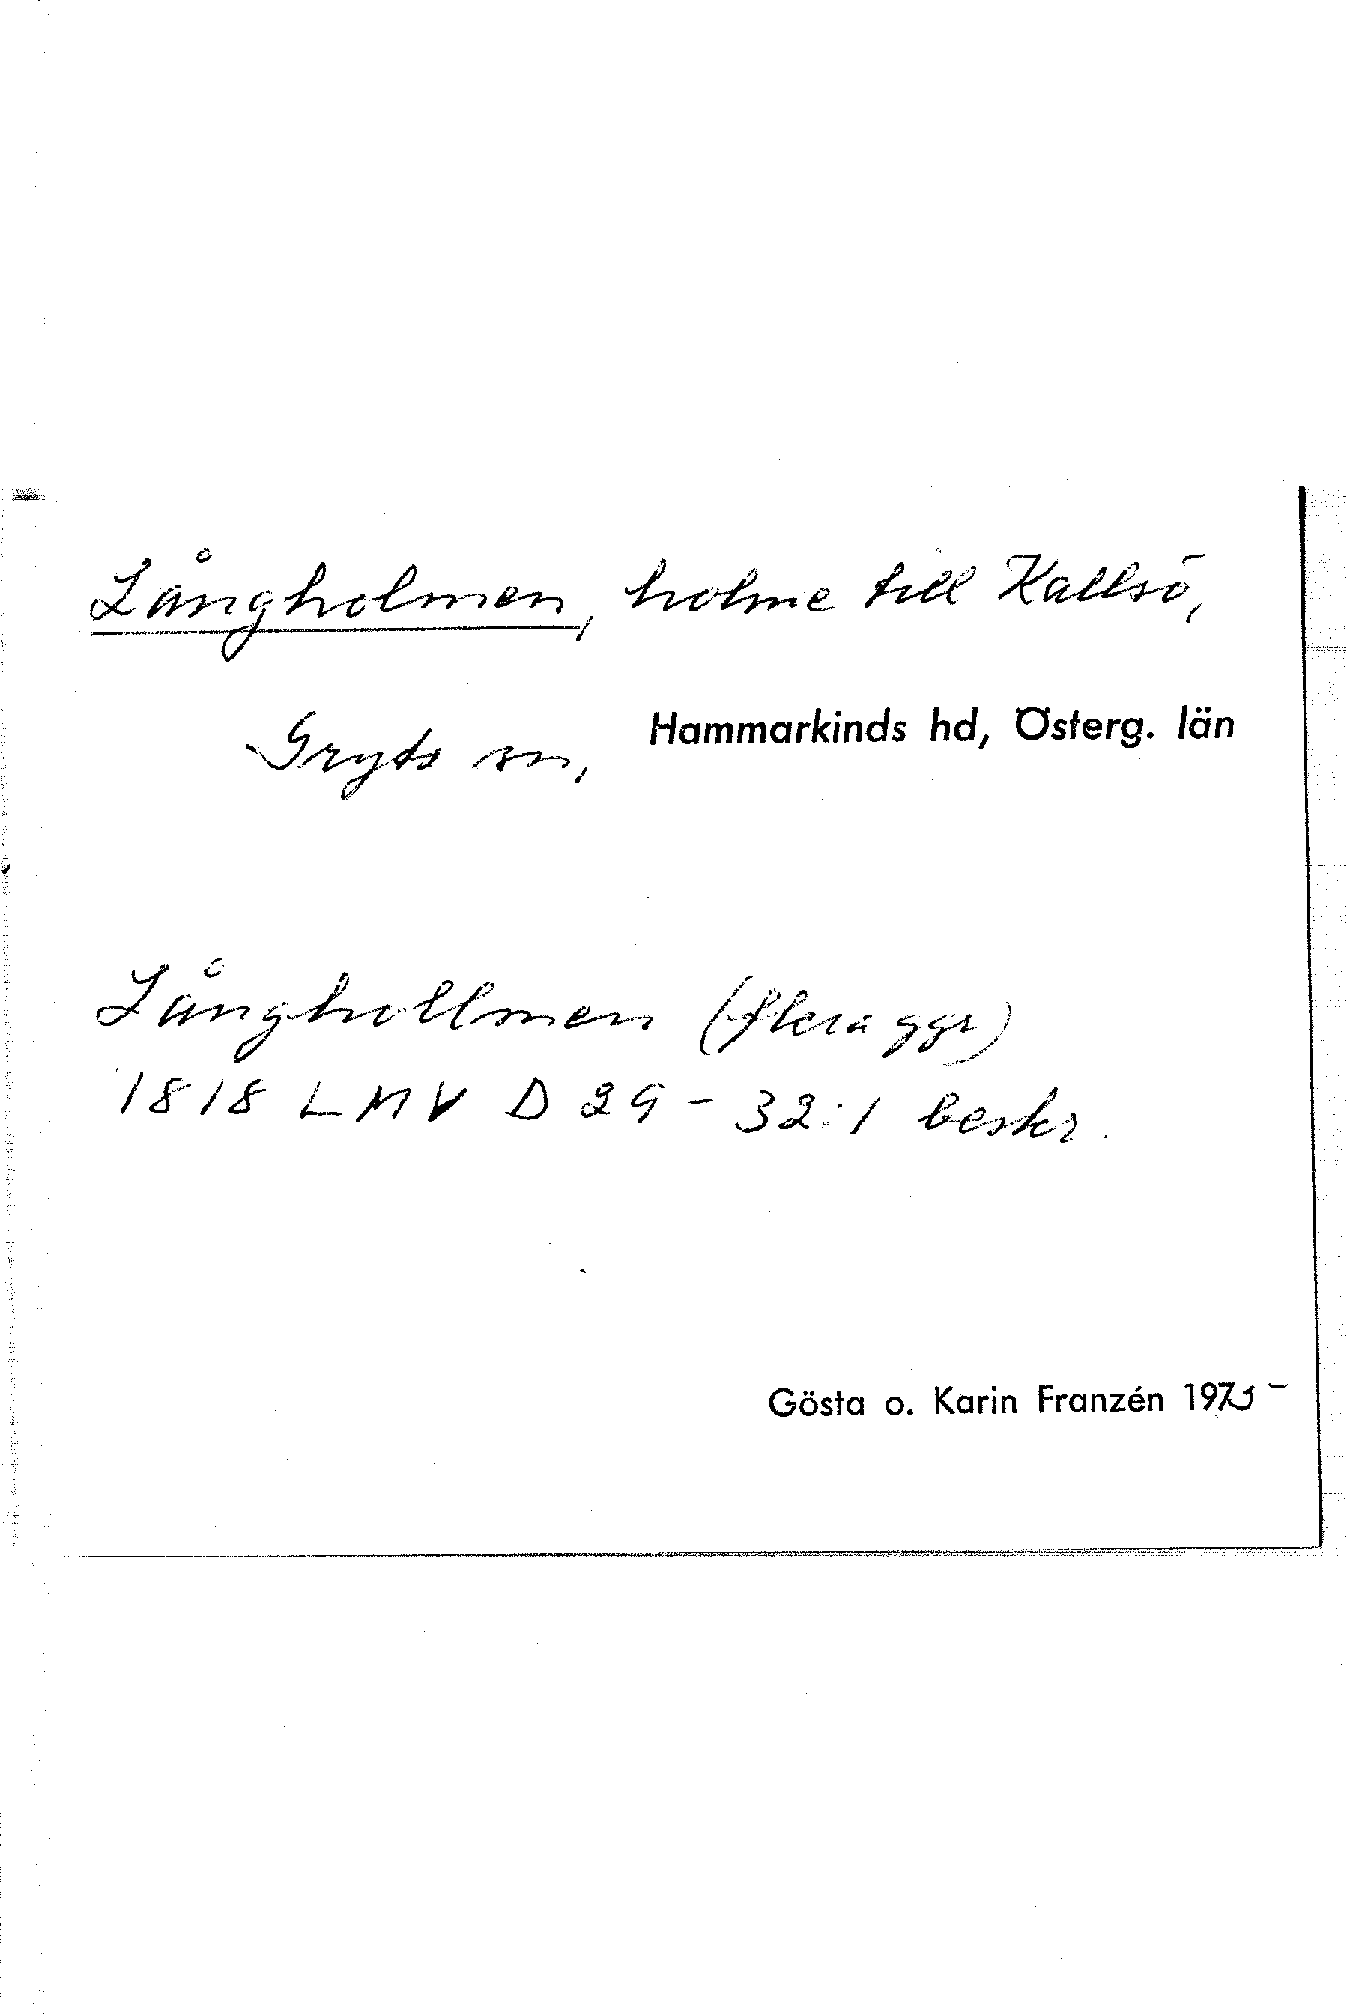 Långholmen, holme till Kallsö,
Gryts sn, Hammarkinds hd, Österg. län
Långhollmen (flera ggr)
1818 LMV D 29 - 32:1 beskr.
Gösta o. Karin Franzén 1975